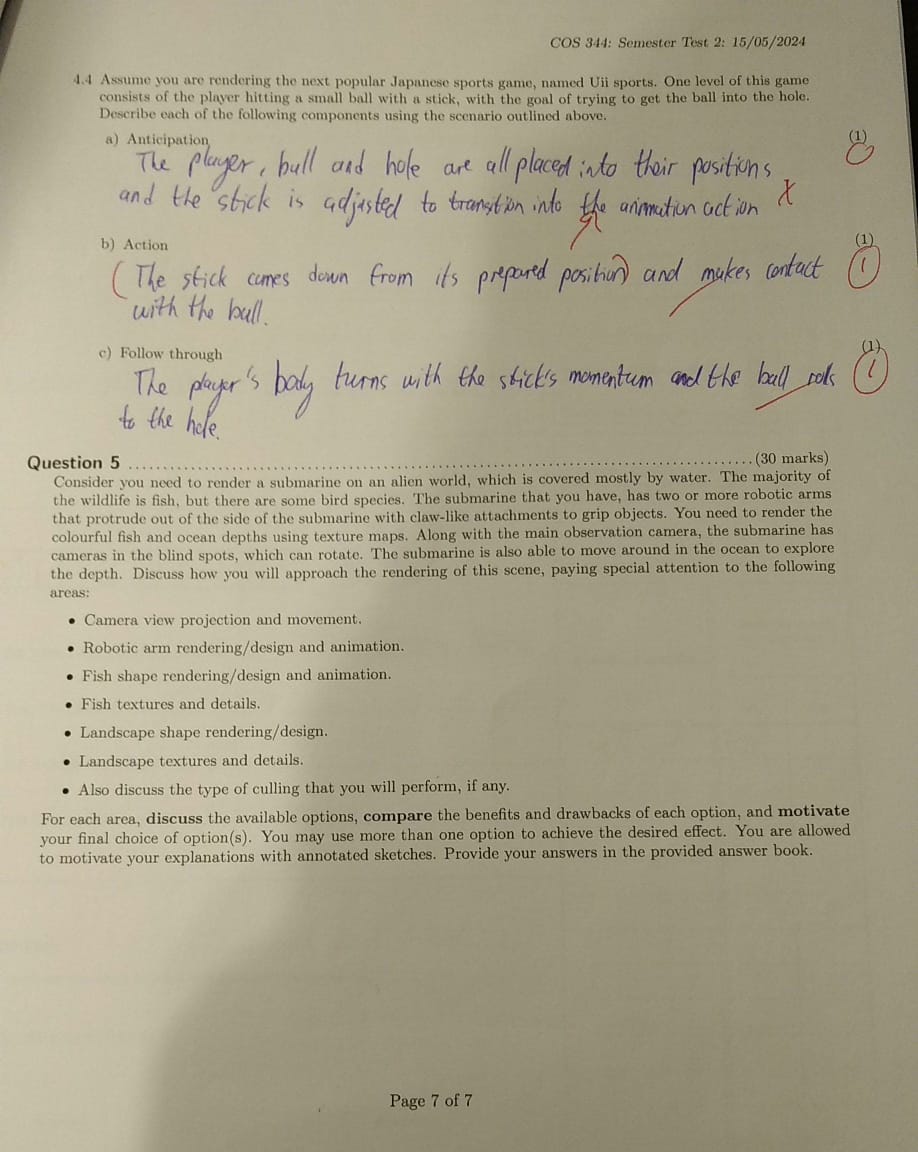 COS 344: Semester Test 2: 15/05/2024
4.4 Assume you are rendering the next popular Japanese sports game, named Uii sports. One level of this game
consists of the player hitting a small ball with a stick, with the goal of trying to get the ball into the hole.
Describe each of the following components using the scenario outlined above.
a) Anticipation (1)
The player, ball and hole are all placed into their positions 0
and the stick is adjusted to transition into the animation action X
b) Action (1)
(The stick comes down from its prepared position) and makes contact 1
with the ball.
c) Follow through (1)
The player's body turns with the stick's momentum and the ball rolls 1
to the hole.
Question 5 (30 marks)
Consider you need to render a submarine on an alien world, which is covered mostly by water. The majority of
the wildlife is fish, but there are some bird species. The submarine that you have, has two or more robotic arms
that protrude out of the side of the submarine with claw-like attachments to grip objects. You need to render the
colourful fish and ocean depths using texture maps. Along with the main observation camera, the submarine has
cameras in the blind spots, which can rotate. The submarine is also able to move around in the ocean to explore
the depth. Discuss how you will approach the rendering of this scene, paying special attention to the following
areas:
• Camera view projection and movement.
• Robotic arm rendering/design and animation.
• Fish shape rendering/design and animation.
• Fish textures and details.
• Landscape shape rendering/design.
• Landscape textures and details.
• Also discuss the type of culling that you will perform, if any.
For each area, discuss the available options, compare the benefits and drawbacks of each option, and motivate
your final choice of option(s). You may use more than one option to achieve the desired effect. You are allowed
to motivate your explanations with annotated sketches. Provide your answers in the provided answer book.
Page 7 of 7